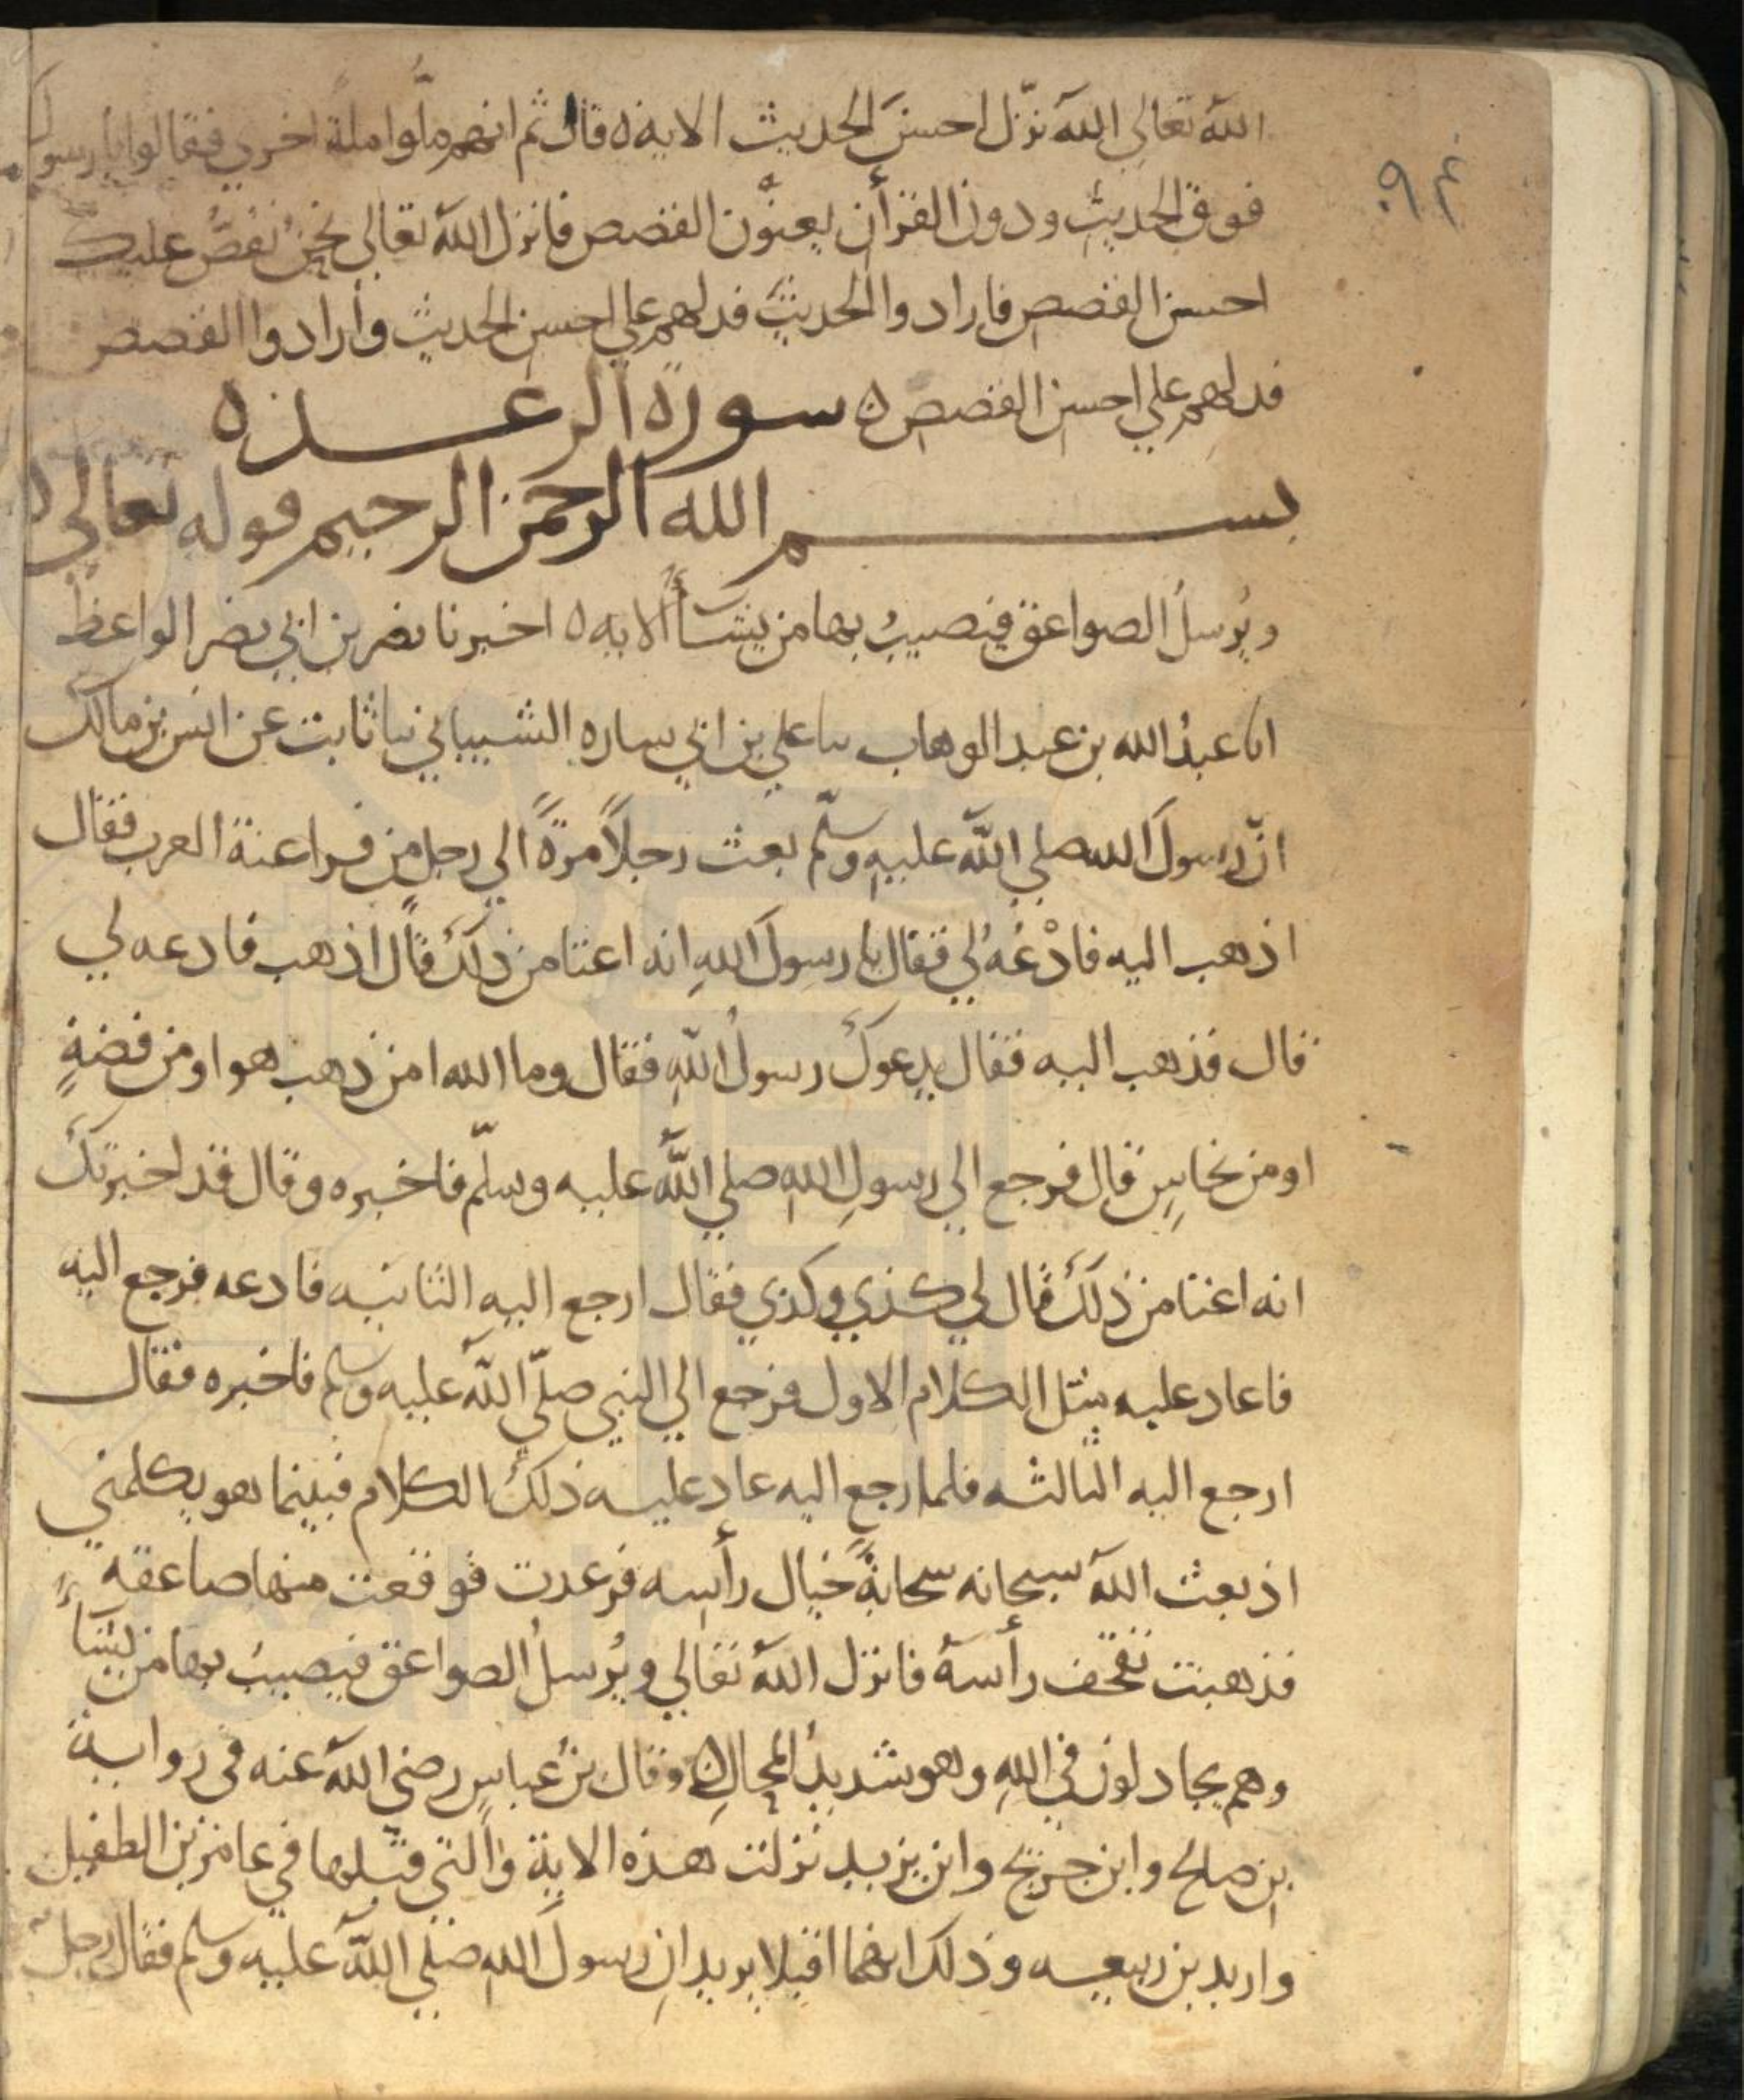 الله تعالى الله نزّل احسنَ الحديث الايه ه قال ثم انهم ملّوا ملةً اخري فقالوا يا رسول
فوق الحديث ودون القرأن يعنون القصص فانزل الله تعالى نحن نقصّ عليك
احسن القصص فارادوا الحديث فدلهم علي احسن الحديث وأرادوا القصص
فدلهم علي احسن القصص ه سورة الرعد ه
بسم الله الرحمن الرحيم قوله تعالى
ويُرسلُ الصواعق فيصيبُ بها من يشآءُ الايه ه اخبرنا نصر بن ابي نصر الواعظ
انا عبدُ الله بن عبد الوهاب نا علي بن ابي ساره الشيباني نا ثابت عن انس بن مالك
انّ رسولَ الله صلي اللّه عليه وسلّم بعث رجلاً مرةً الي رجل من فراعنة العرب فقال
اذهب اليه فادْعُهُ لي فقال يا رسولَ اللهِ انه اعتا من ذلك قال اذهب فادعه لي
قال فذهب اليه فقال يدعوكَ رسولُ اللهِ فقال وما الله امن ذهب هو او من فضةٍ
او من نحاسٍ قال فرجع الي رسولِ اللهِ صلي اللّه عليه وسلّم فاخبره وقال قد اخبرتك
انه اعتا من ذلكَ قال لي كذي وكذي فقال ارجع اليه الثانيه فادعه فرجع اليه
فاعاد عليه مثل الكلام الاول فرجع الي النبي صلّي اللّه عليه وسلم فاخبره فقال
ارجع اليه الثالثه فلما رجع اليه عاد عليه ذلكَ الكلام فبينما هو يكلمني
اذ بعث الله سبحانه سحابةً حيال رأسه فرعدت فوقعت منها صاعقه
فذهبت بقحف رأسه فانزل اللهُ تعالي ويُرسلُ الصواعق فيصيبُ بها من يشآءُ
وهم يجادلون في اللهِ وهو شديدُ المحالِ ه وقال بنُ عباسٍ رضي الله عنه في رواية
ابن صالح وابن جريج وابن يزيد نزلت هذه الاية والتي قبلها في عامر بن الطفيل
واربد بن ربيعه وذلك انهما اقبلا يريدانِ رسولَ اللهِ صلي اللّه عليه وسلم فقال رجل